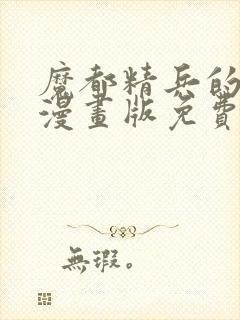 魔都精兵的
漫畫版免費
無瑕。